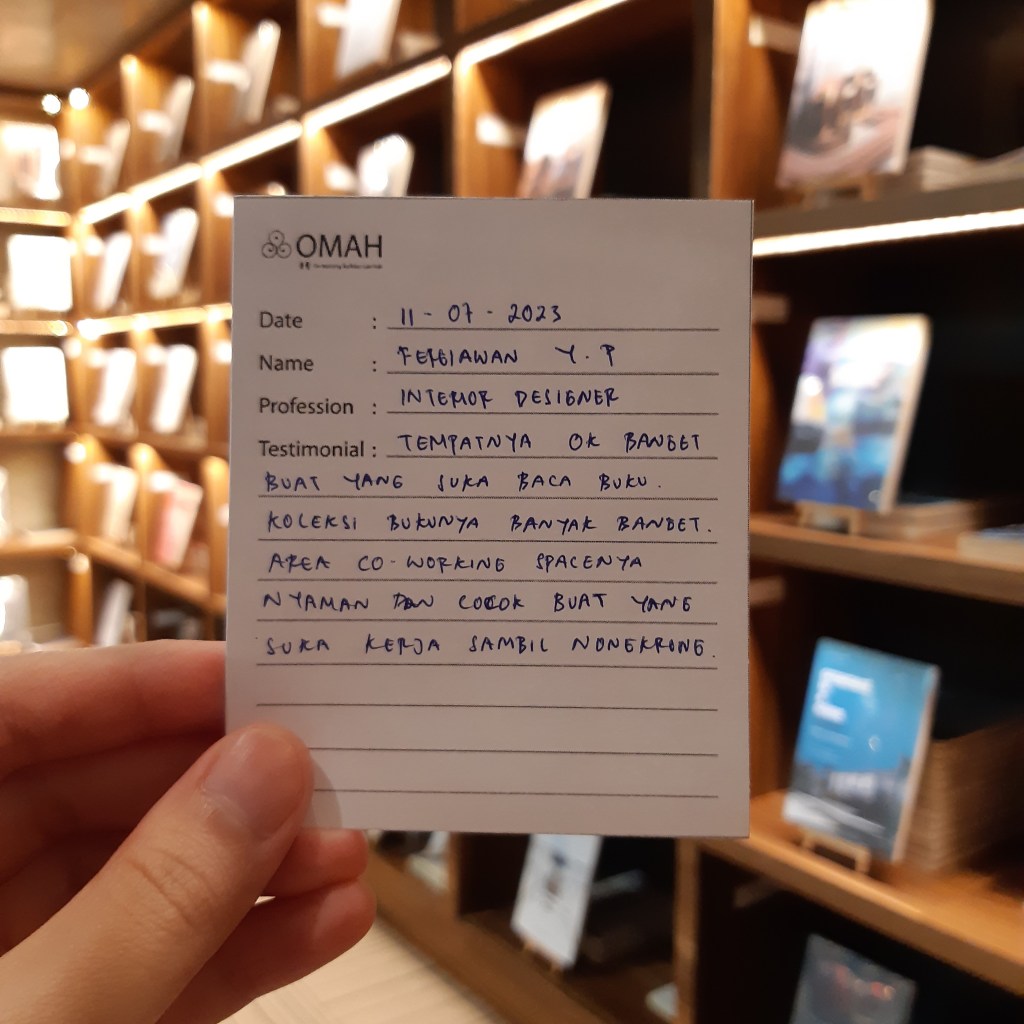 OMAH
Date : 11 - 07 - 2023
Name : FERGIAWAN Y. P
Profession : INTERIOR DESIGNER
Testimonial : TEMPATNYA OK BANGET
BUAT YANG SUKA BACA BUKU.
KOLEKSI BUKUNYA BANYAK BANGET.
AREA CO-WORKING SPACENYA
NYAMAN DAN COCOK BUAT YANG
SUKA KERJA SAMBIL NONGKRONG.